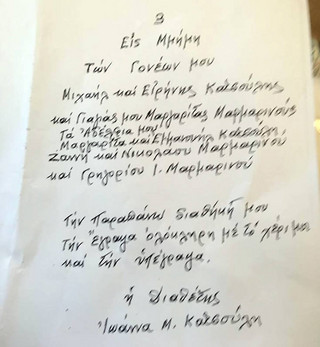 3
Εἰς Μνήμη
Τῶν Γονέων μου
Μιχαήλ καί Εἰρήνης Κατσούλης
καί Γιαγιάς μου Μαργαρίτας Μαρμαρινούς
Τά Ἀδέλφια μου
Μαργαρίτα καί Εμμανουήλ Κατσούλη
Ζαννή καί Νικολάου Μαρμαρινού
καί Γρηγορίου Ι. Μαρμαρινού
Τήν Παραπάνω διαθήκη μου
Τήν Ἔγραψα ὁλόκληρη μέ τό χέρι μου
καί τήν ὑπέγραψα.
ἡ Διαθέτης
Ἰωάννα Μ. Κατσούλη